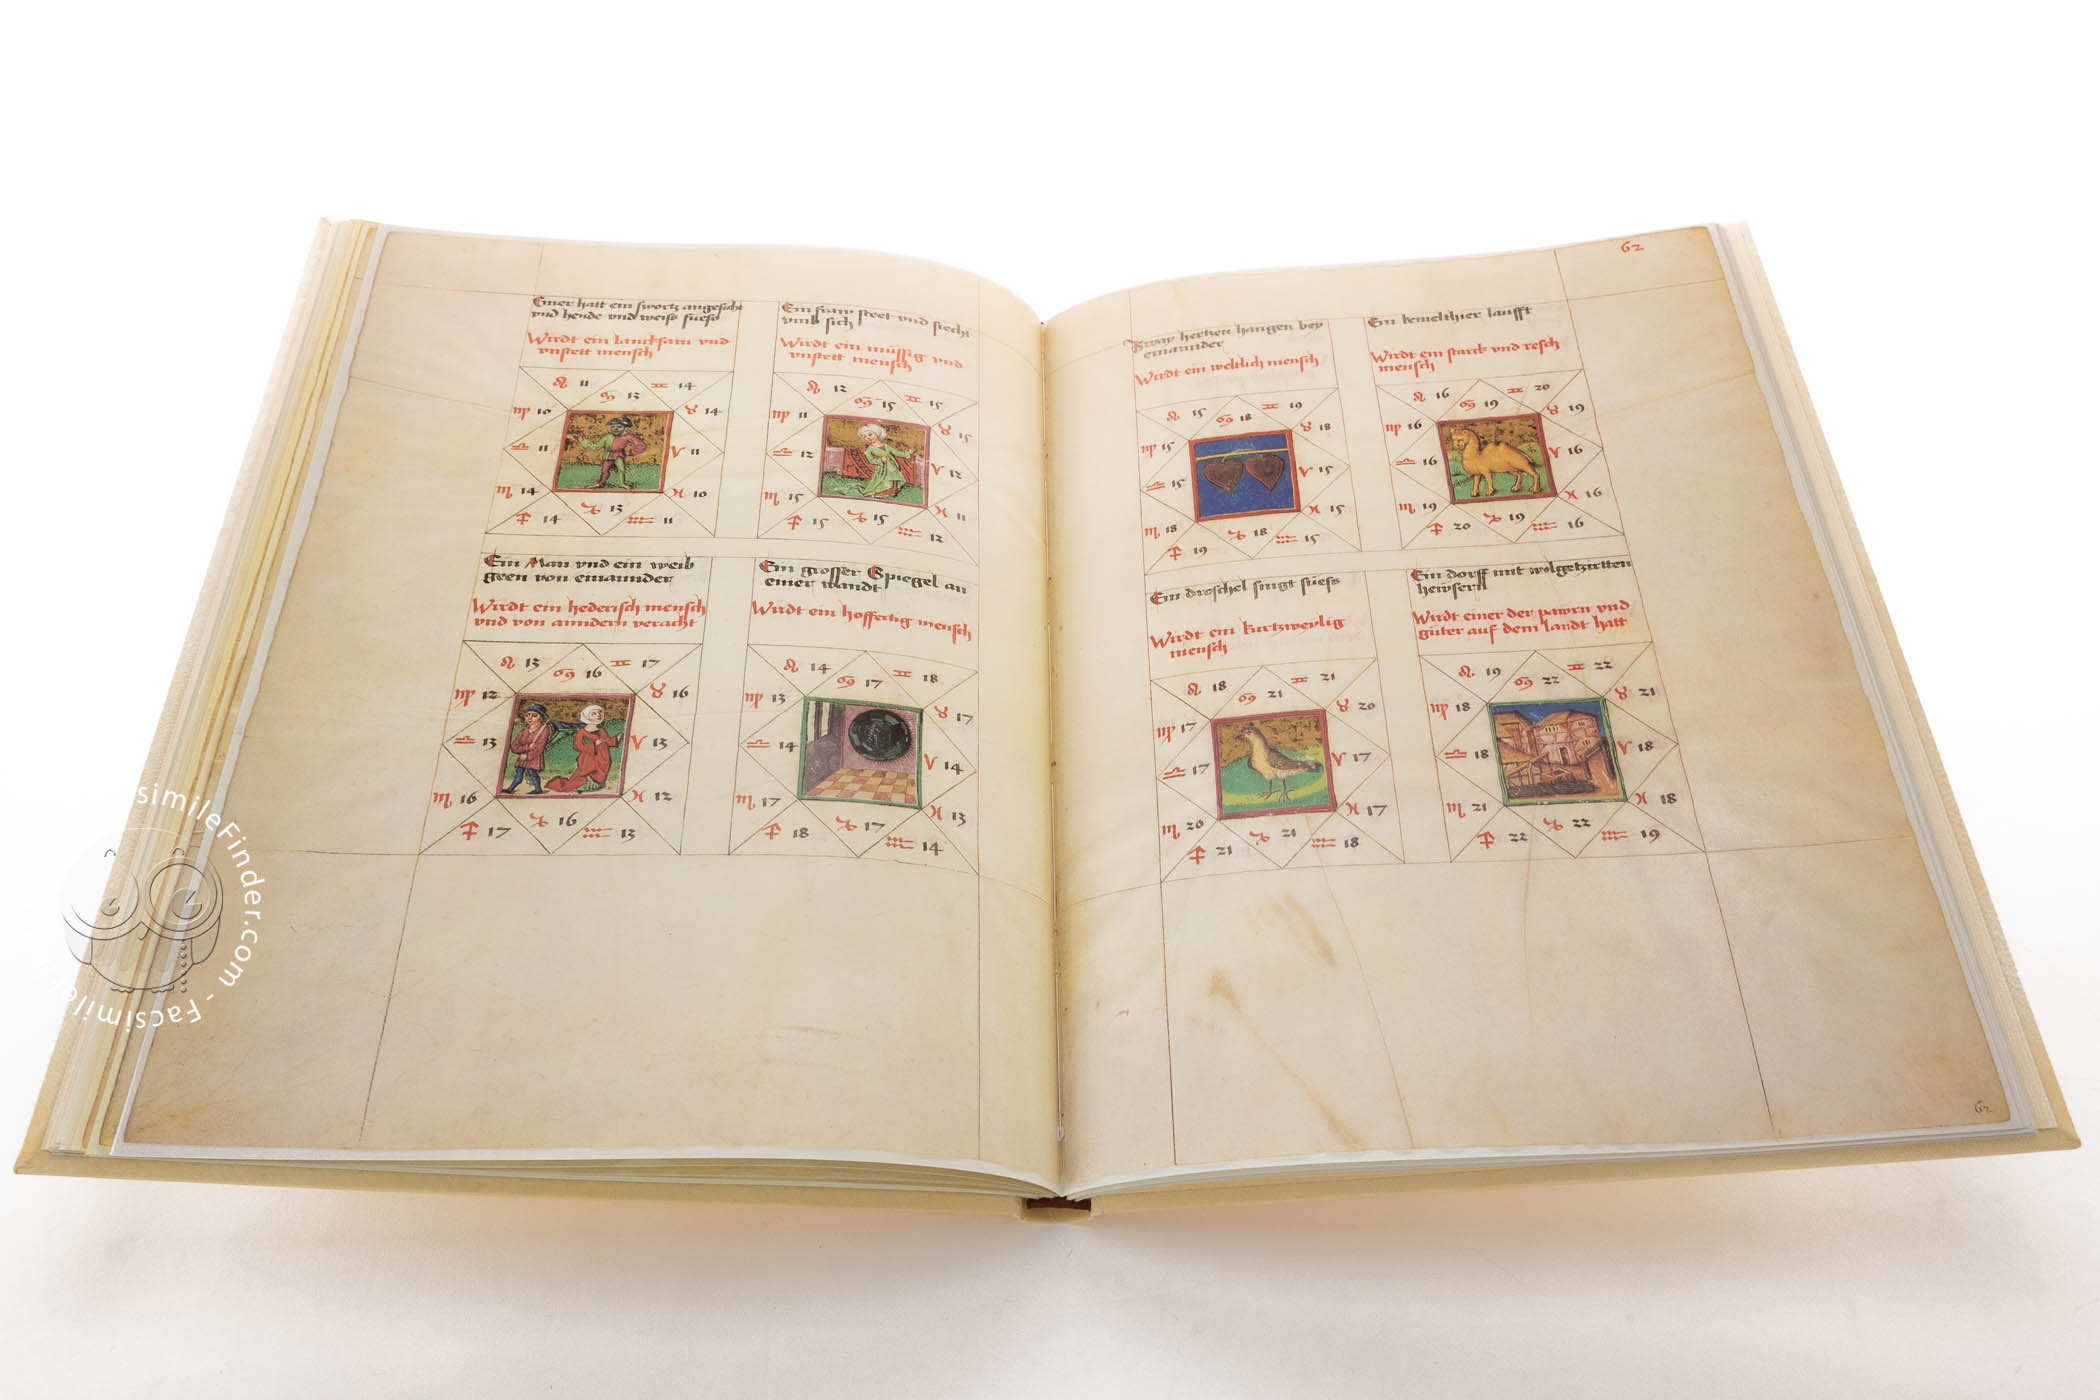 Einer hatt ein swortz angesicht
vnd hende vnd weiss fuess
Wirdt ein lancksam vnd
vnstett mensch
♌ 11 ♋ 13 ♊ 14
♍ 10 ♉ 14
♎ 11 ♈ 11
♏ 14 ♓ 10
♐ 14 ♑ 13 ♒ 11
Ein fraw steet vnd siecht
vmb sich
Wirdt ein müssig vnd
vnstett mensch
♌ 12 ♋ 15 ♊ 15
♍ 11 ♉ 15
♎ 12 ♈ 12
♏ 15 ♓ 11
♐ 15 ♑ 15 ♒ 12
Ein Man vnd ein weib
geen von einannder
Wirdt ein hederisch mensch
vnd von anndern veracht
♌ 13 ♋ 16 ♊ 17
♍ 12 ♉ 16
♎ 13 ♈ 13
♏ 16 ♓ 12
♐ 17 ♑ 16 ♒ 13
Ein grosser Spiegel an
einer wandt
Wirdt ein hoffertig mensch
♌ 14 ♋ 17 ♊ 18
♍ 13 ♉ 17
♎ 14 ♈ 14
♏ 17 ♓ 13
♐ 18 ♑ 17 ♒ 14
62
Zway hertzen hangen bey
einannder
Wirdt ein weltlich mensch
♌ 15 ♋ 18 ♊ 19
♍ 15 ♉ 18
♎ 15 ♈ 15
♏ 18 ♓ 15
♐ 19 ♑ 18 ♒ 15
Ein kemelthier laufft
Wirdt ein starck vnd resch
mensch
♌ 16 ♋ 19 ♊ 20
♍ 16 ♉ 19
♎ 16 ♈ 16
♏ 19 ♓ 16
♐ 20 ♑ 19 ♒ 16
Ein droschel singt suess
Wirdt ein kurtzweylig
mensch
♌ 18 ♋ 21 ♊ 21
♍ 17 ♉ 20
♎ 17 ♈ 17
♏ 20 ♓ 17
♐ 21 ♑ 21 ♒ 18
Ein dorff mit wolgetzirtten
hewsern
Wirdt einer der pawrn vnd
güter auf dem landt hatt
♌ 19 ♋ 22 ♊ 22
♍ 18 ♉ 21
♎ 18 ♈ 18
♏ 21 ♓ 18
♐ 22 ♑ 22 ♒ 19
62
simileFinder.com - Facsimile